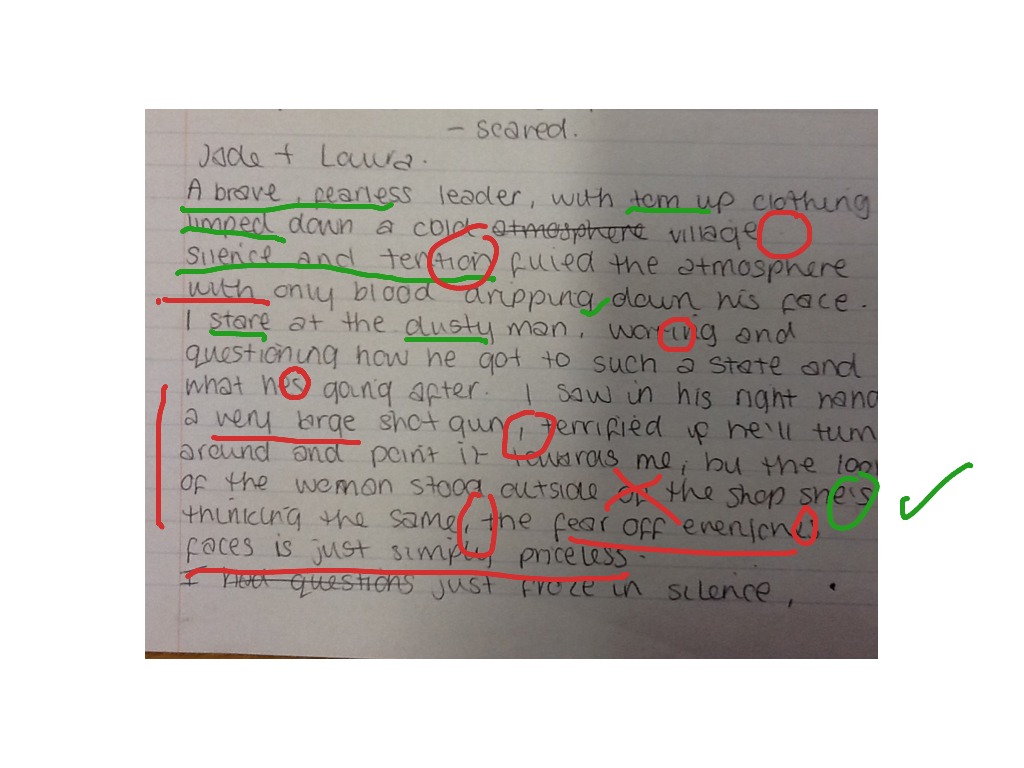 - scared.
Jade + Laura.
A brave, fearless leader, with torn up clothing
limped down a cold atmosphere village
silence and tention fulled the atmosphere
with only blood dripping down his face.
I stare at the dusty man, worring and
questioning how he got to such a state and
what hes going after. I saw in his right hand
a very large shot gun, terrified if he'll turn
around and point it towards me, by the look
of the woman stood outside of the shop she's
thinking the same, the fear off everyones
faces is just simply priceless.
I had questions just froze in silence,